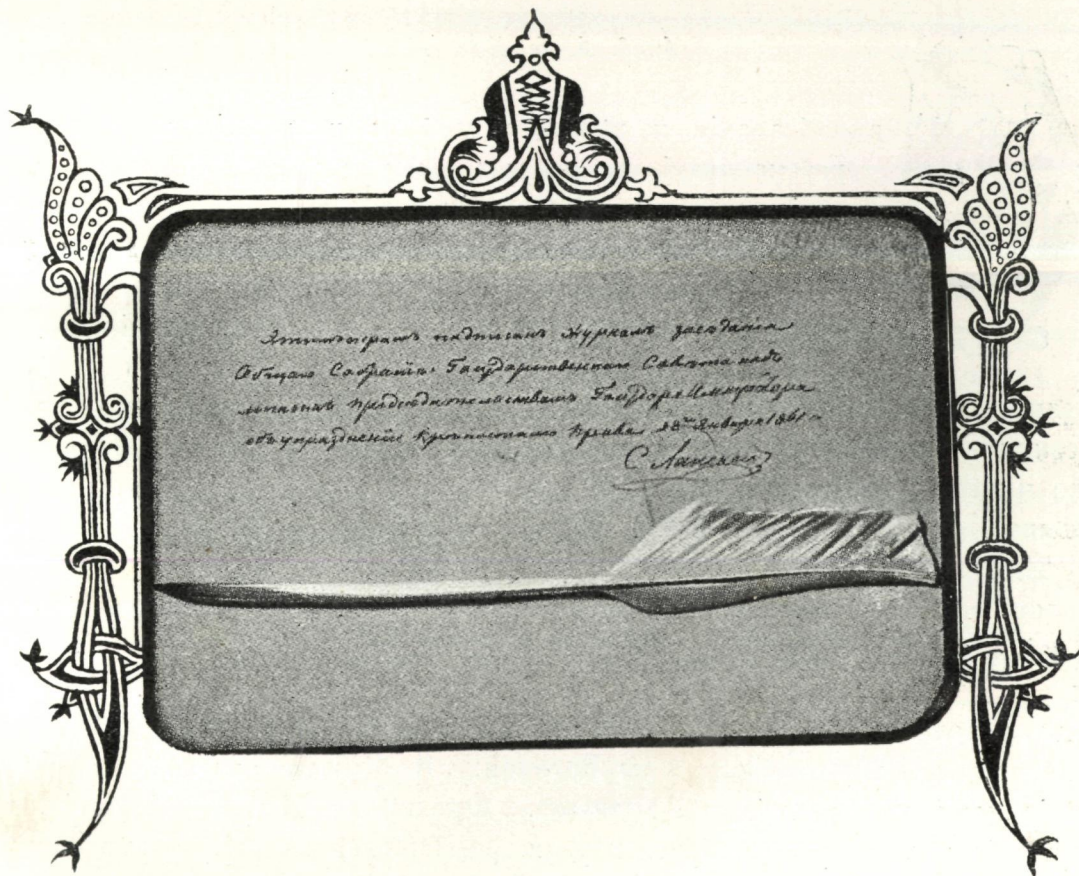 Этимъ перомъ подписанъ Журналъ заседанія
Общаго Собранія Государственнаго Совѣта подъ
личнымъ предсѣдательствомъ Государя Императора
объ упраздненіи крѣпостнаго права 28го Января 1861 г.
С Ланской